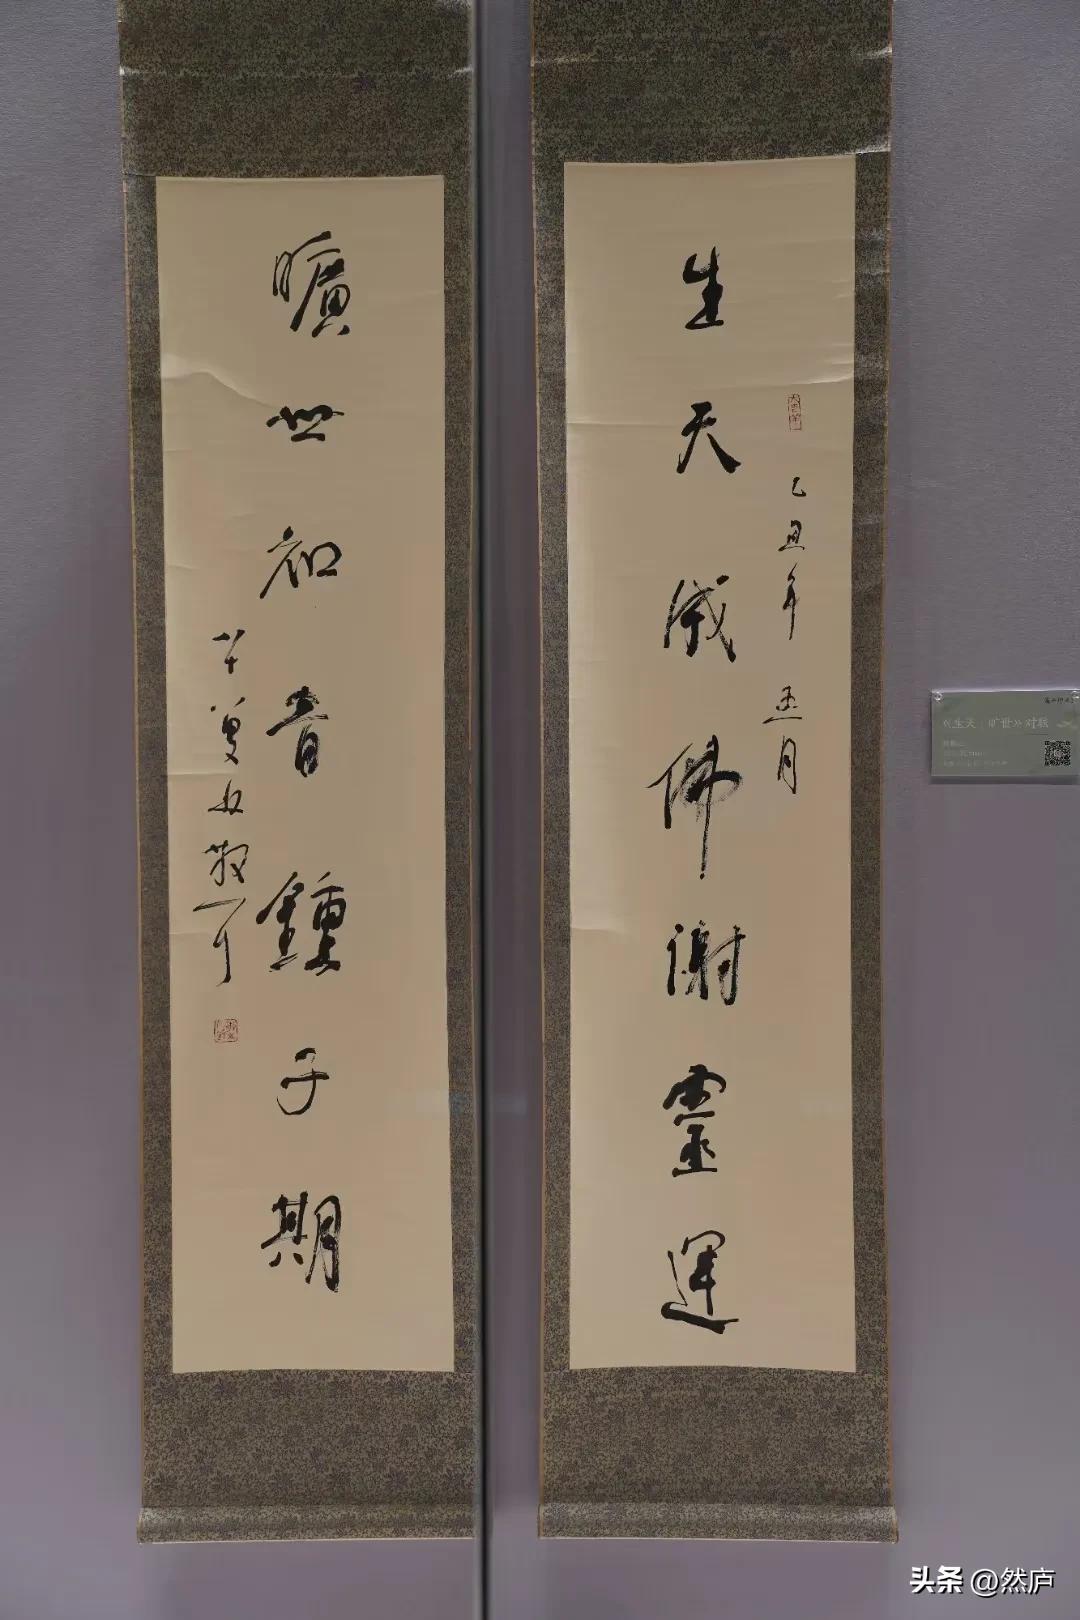 生天成佛謝靈運
乙丑年 月
曠世知音鍾子期
八十八叟 散耳
《生天 旷世》对联
头条 @然庐